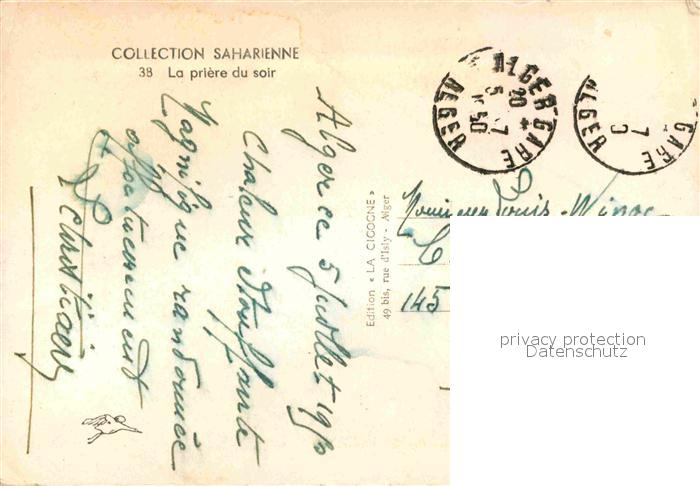 COLLECTION SAHARIENNE
38 La prière du soir
Alger ce 5 Juillet 1950
Chaleur étouffante
Magnifique randonnée
affectueusement
Christian
Edition « LA CICOGNE »
49 bis, rue d'Isly - Alger
ALGER GARE
20
5 - 7
1950
ALGER
ALGER GARE
7
Monsieur Louis
145
privacy protection
Datenschutz